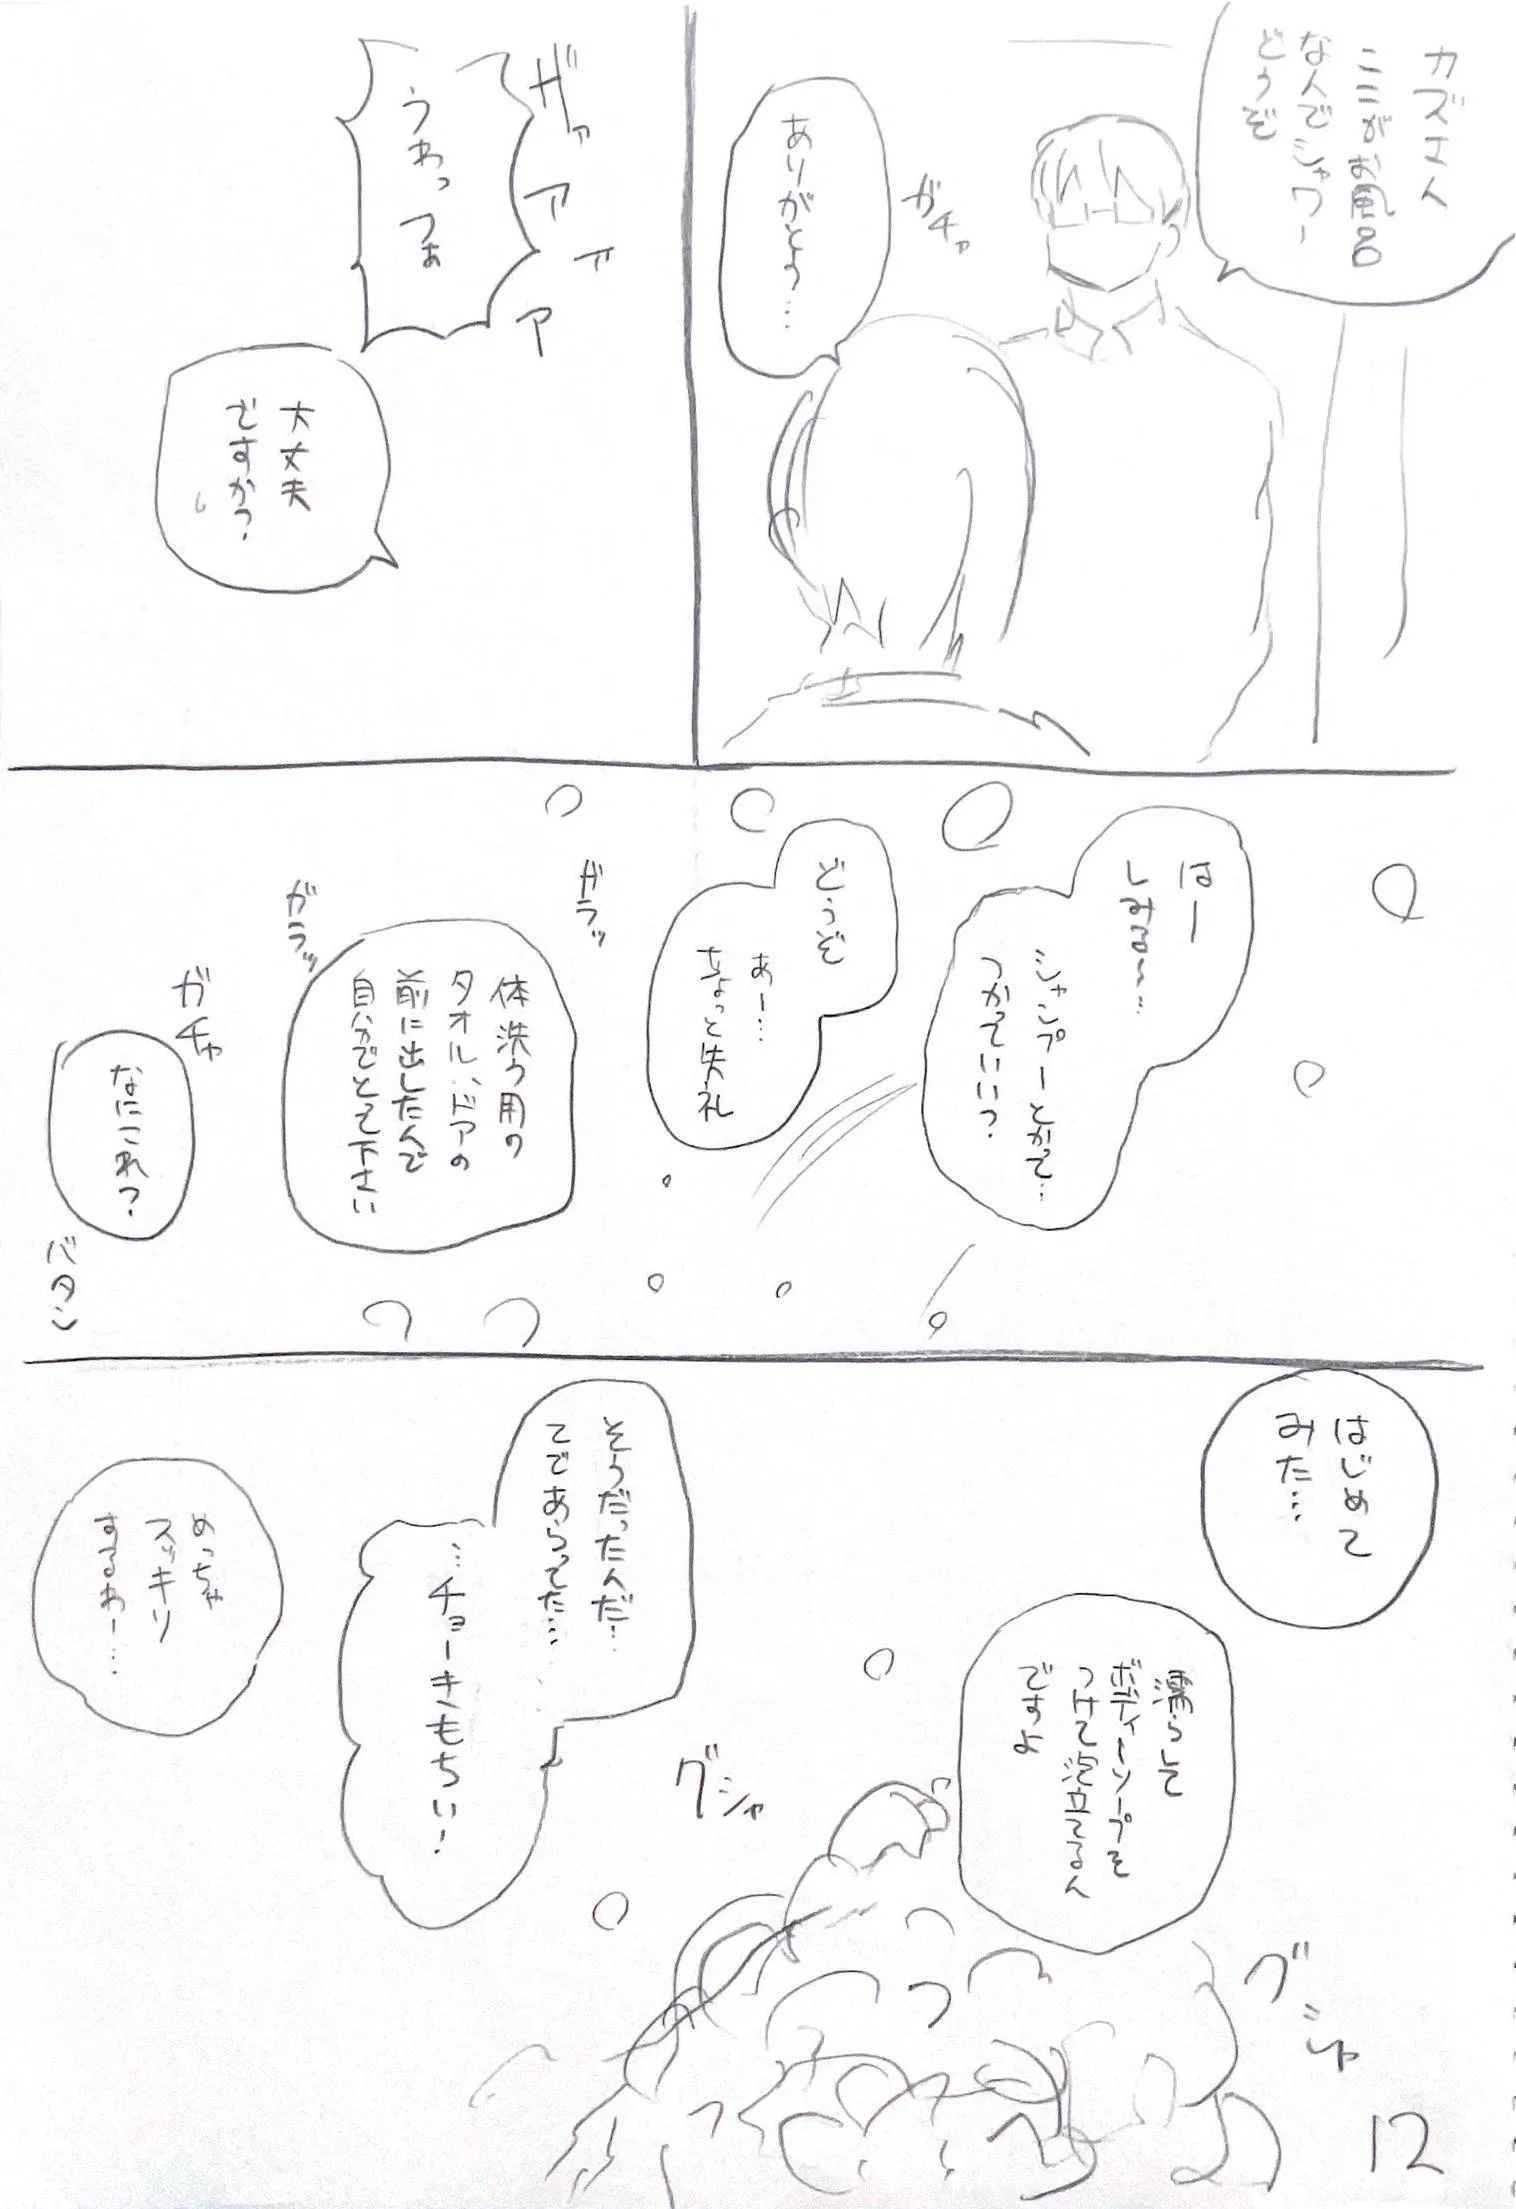 カズさん
ここがお風呂
なんでシャワー
どうぞ
ガチャ
ありがとう…
ザァァァア
うわっつぁ
大丈夫
ですか?
はー
しみる〜…
シャンプーとかって…
つかっていい?
どうぞ
あー…
ちょっと失礼
ガラッ
体洗う用の
タオル、ドアの
前に出したんで
自分でとって下さい
ガラッ
ガチャ
なにこれ?
バタン
はじめて
みた…
濡らして
ボディーソープを
つけて泡立てるん
ですよ
グシャ
グシャ
そうだったんだ…
てであらってた…
…チョーきもちい!
めっちゃ
スッキリ
するわー…
12